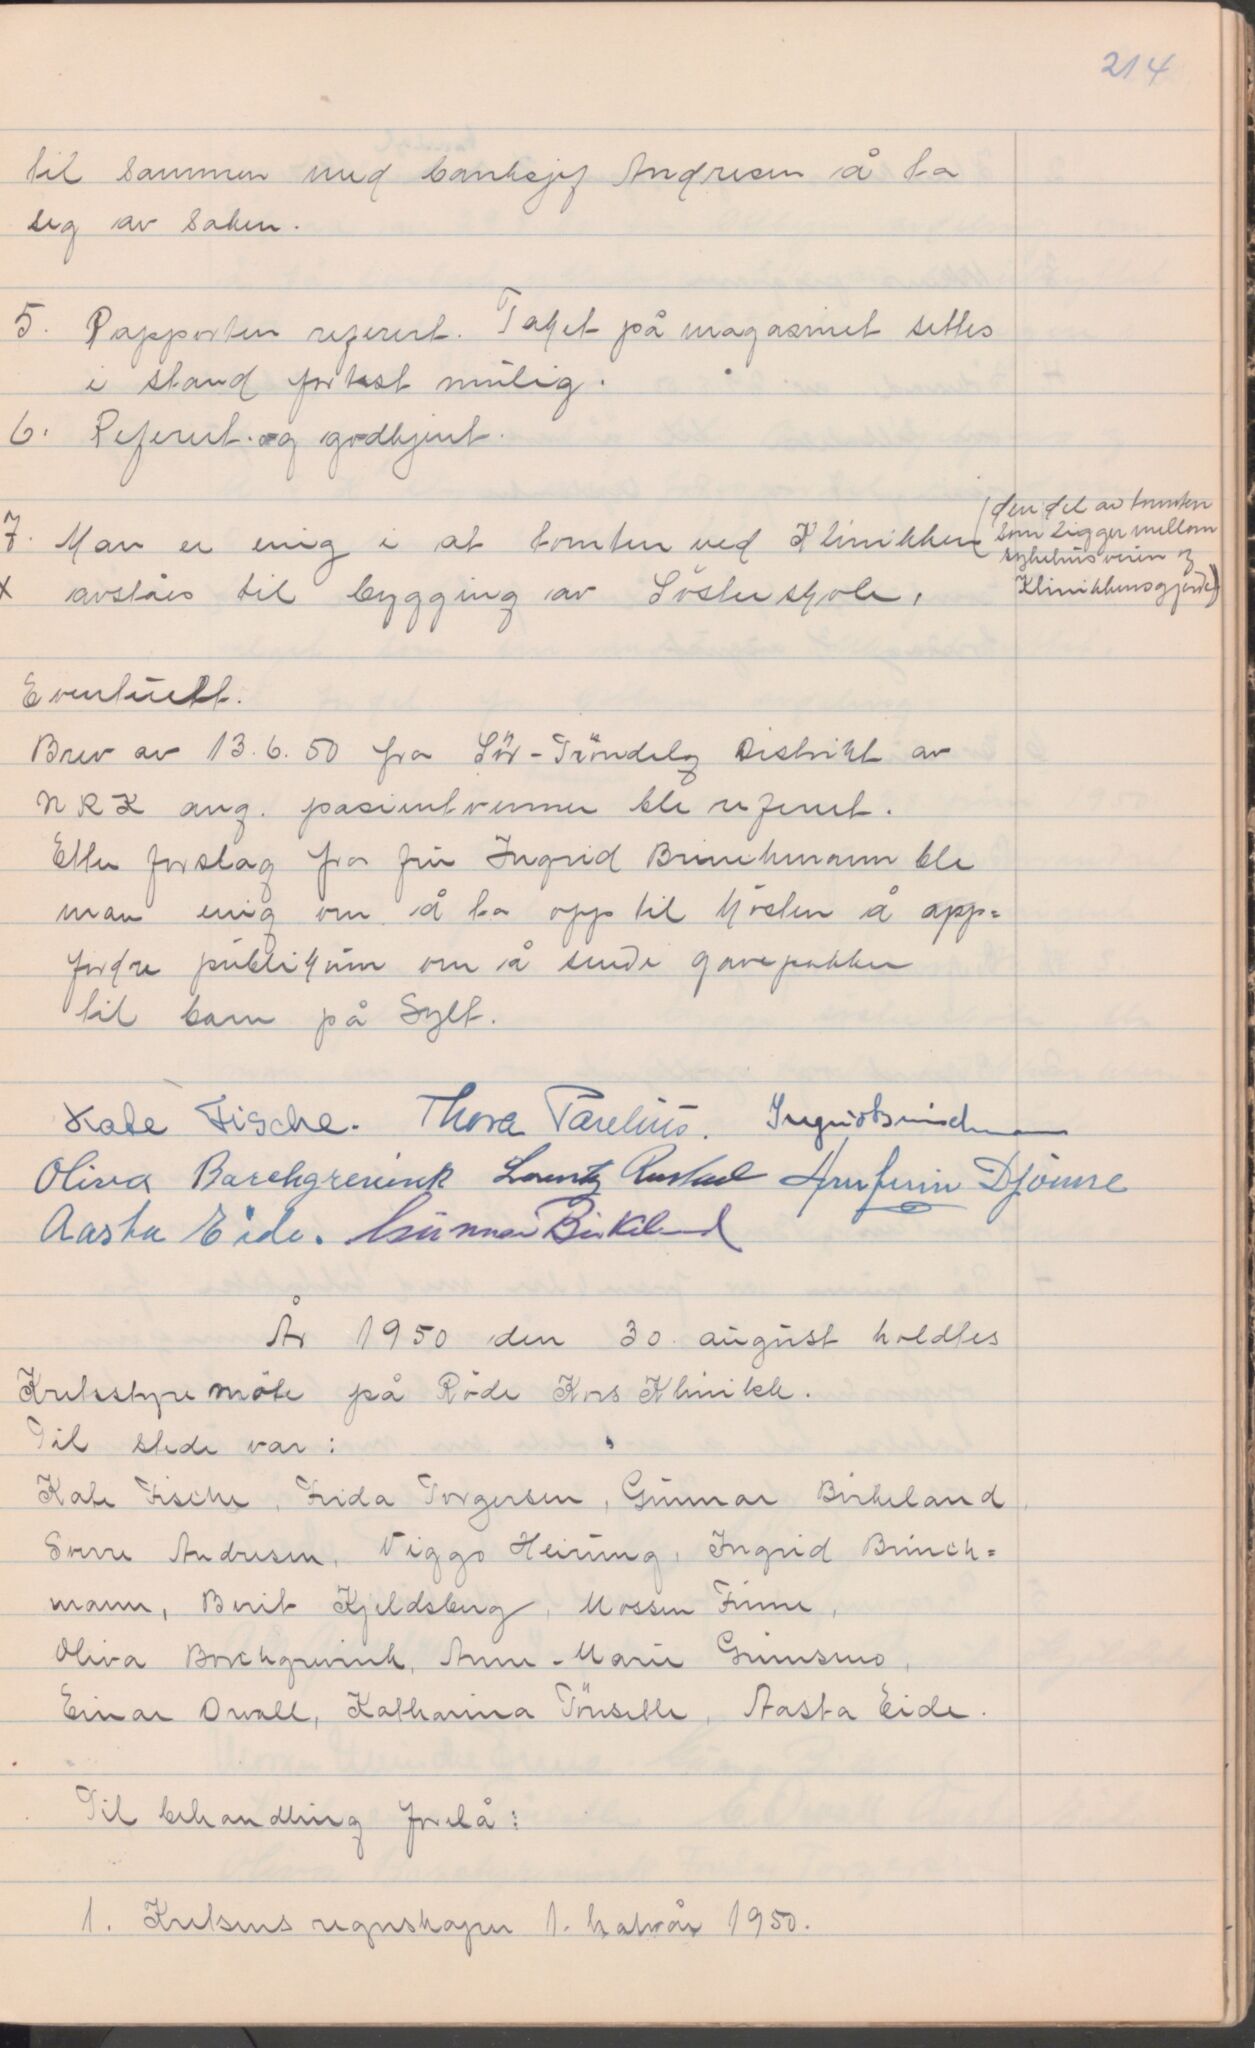 214
til sammen med banksjef Andresen å ta
seg av saken.
5. Rapporten referert. Taket på magasinet settes
i stand fortest mulig.
6. Referert og godkjent.
7. Man er enig i at tomten ved Klinikken (den del av tomten
som ligger mellom
sykehusveien og
Klinikkens gjerde)
x avståes til bygging av Søsterskole.
Eventuelt.
Brev av 13.6.50 fra Sør-Trøndelag Distrikt av
NRK ang. pasientvenner ble referert.
Etter forslag fra fru Ingrid Brinchmann ble
man enig om å ta opp til høsten å opp=
fordre publikum om å sende gavepakker
til barn på Sylt.
Kate Fische. Thora Parelius. Ingrid Brinchmann
Oliva Borchgrevink Arnfinn Djönne
Aasta Eide. Gunnar Birkeland
År 1950 den 30. august holdtes
Kretsstyremöte på Röde Kors Klinikk.
Til stede var:
Kate Fische, Frida Torgersen, Gunnar Birkeland,
Sverre Andresen, Viggo Heirung, Ingrid Brinch=
mann, Berit Kjeldsberg, Mossen Finne,
Oliva Borchgrevink, Anne-Marie Grimsmo,
Einar Orvall, Katharina Tönseth, Aasta Eide.
Til behandling forelå:
1. Kretsens regnskaper 1. halvår 1950.